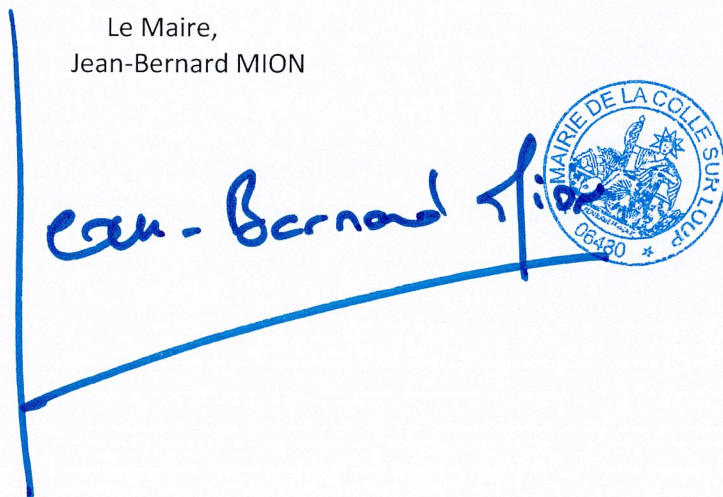 Le Maire,
Jean-Bernard MION
Jean-Bernard Mion
MAIRIE DE LA COLLE SUR LOUP
06480